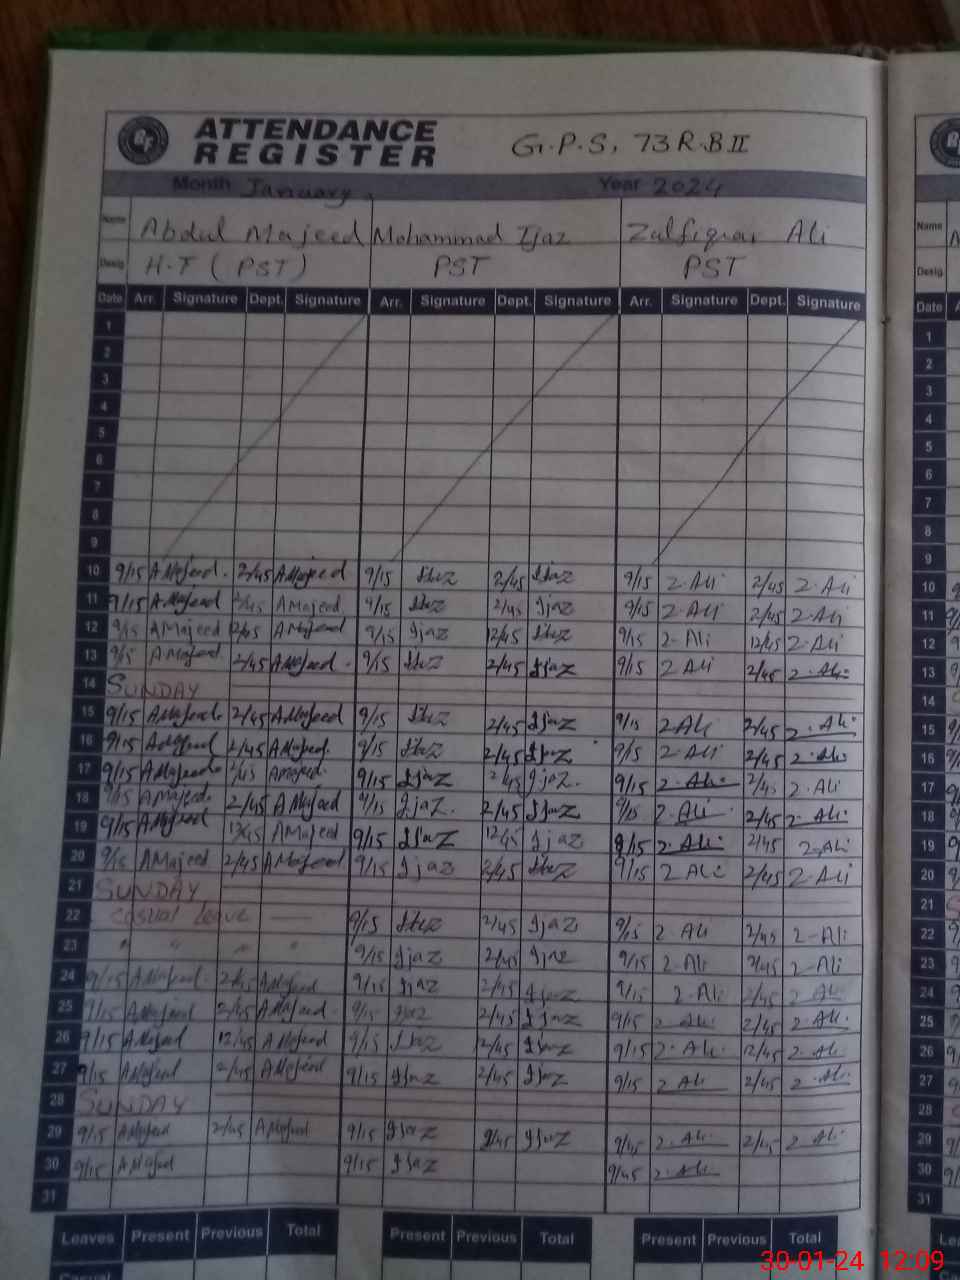 ATTENDANCE
REGISTER
G.P.S, 73 R.B II
Month January, Year 2024
Name Abdul Majeed Mohammad Ijaz Zulfiqar Ali Name
Desig. H.T (PST) PST PST Desig.
Date Arr. Signature Dept. Signature Arr. Signature Dept. Signature Arr. Signature Dept. Signature Date
1 1
2 2
3 3
4 4
5 5
6 6
7 7
8 8
9 9
10 9/15 AMajeed. 2/45 AMajeed 9/15 Ijaz 2/45 Ijaz 9/15 Z.Ali 2/45 Z.Ali 10
11 9/15 AMajeed 2/45 AMajeed 9/15 Ijaz 2/45 Ijaz 9/15 Z.Ali 2/45 Z.Ali 11
12 9/15 AMajeed 12/45 AMajeed 9/15 Ijaz 12/45 Ijaz 9/15 Z-Ali 12/45 Z.Ali 12
13 9/15 AMajeed 2/45 AMajeed. 9/15 Ijaz 2/45 Ijaz 9/15 Z Ali 2/45 Z.Ali 13
14 SUNDAY 14
15 9/15 AMajeed. 2/45 AMajeed 9/15 Ijaz 2/45 Ijaz 9/15 Z Ali 2/45 Z.Ali 15
16 9/15 AMajeed 2/45 AMajeed. 9/15 Ijaz 2/45 Ijaz 9/15 Z.Ali 2/45 Z.Ali 16
17 9/15 AMajeed. 2/45 AMajeed. 9/15 Ijaz 2/45 Ijaz. 9/15 Z.Ali 2/45 Z.Ali 17
18 9/15 AMajeed. 2/45 AMajeed 9/15 Ijaz. 2/45 Ijaz 9/15 Z.Ali 2/45 Z.Ali 18
19 9/15 AMajeed 12/45 AMajeed 9/15 Ijaz 12/45 Ijaz 9/15 Z.Ali 2/45 Z-Ali 19
20 9/15 AMajeed 2/45 AMajeed 9/15 Ijaz 2/45 Ijaz 9/15 Z Ali 2/45 Z-Ali 20
21 SUNDAY 21
22 Casual Leave 9/15 Ijaz 2/45 Ijaz 9/15 Z.Ali 2/45 Z-Ali 22
23 " " " " 9/15 Ijaz 2/45 Ijaz 9/15 Z.Ali 2/45 Z-Ali 23
24 9/15 AMajeed. 2/45 AMajeed 9/15 Ijaz 2/45 Ijaz 9/15 Z.Ali 2/45 Z.Ali 24
25 9/15 AMajeed 2/45 AMajeed. 9/15 Ijaz 2/45 Ijaz 9/15 Z.Ali 2/45 Z.Ali 25
26 9/15 AMajeed 12/45 AMajeed 9/15 Ijaz 12/45 Ijaz 9/15 Z.Ali 12/45 Z.Ali 26
27 9/15 AMajeed 2/45 AMajeed 9/15 Ijaz 2/45 Ijaz 9/15 Z Ali 2/45 Z.Ali 27
28 SUNDAY 28
29 9/15 AMajeed 2/45 AMajeed 9/15 Ijaz 2/45 Ijaz 9/45 Z.Ali 2/45 Z.Ali 29
30 9/15 AMajeed 9/15 Ijaz 9/45 Z.Ali 30
31 31
Leaves Present Previous Total Present Previous Total Present Previous Total
Casual
30-01-24 12:09